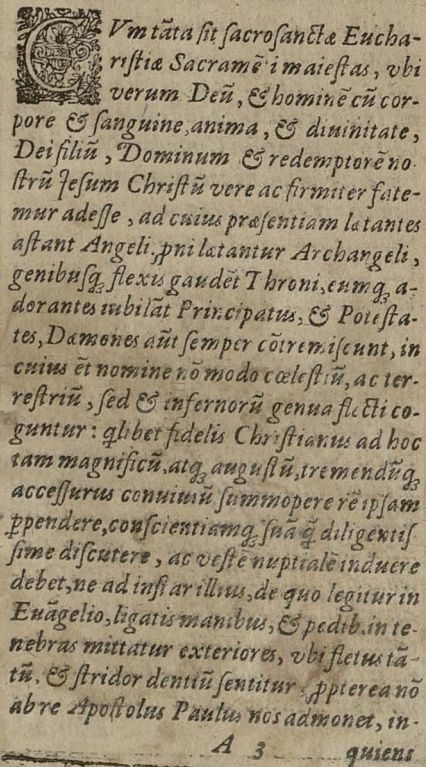 CVm tãta sit sacrosanctæ Eucha-
ristiæ Sacramẽti maiestas, vbi
verum Deũ, & hominẽ cũ cor-
pore & sanguine, anima, & diuinitate,
Dei filiũ, Dominum & redemptorẽ no
strũ Jesum Christũ vere ac firmiter fate-
mur adesse, ad cuius præsentiam lętantes
astant Angeli, ꝓni lætantur Archangeli,
genibusꝗ flexis gaudẽt Throni, eumꝗ a-
dorantes iubilãt Principatus, & Potesta-
tes, Dæmones aũt semper cõtremiscunt, in
cuius ẽt nomine nõ modo cœlestiũ, ac ter-
restriũ, sed & infernorũ genua flecti co-
guntur: qlibet fidelis Christianus ad hoc
tam magnificũ, atꝗ augustũ, tremendũꝗ
accessurus conuiuiũ summopere rẽ ipsam
ꝑpendere, conscientiamꝗ suã q̃ diligentis
sime discutere, ac vestẽ nuptialẽ induere
debet, ne ad instar illius, de quo legitur in
Euãgelio, ligatis manibus, & pedib. in te-
nebras mittatur exteriores, vbi fletus tã-
tũ, & stridor dentiũ sentitur. ꝓpterea nõ
ab re Apostolus Paulus nos admonet, in-
A 3 quiens